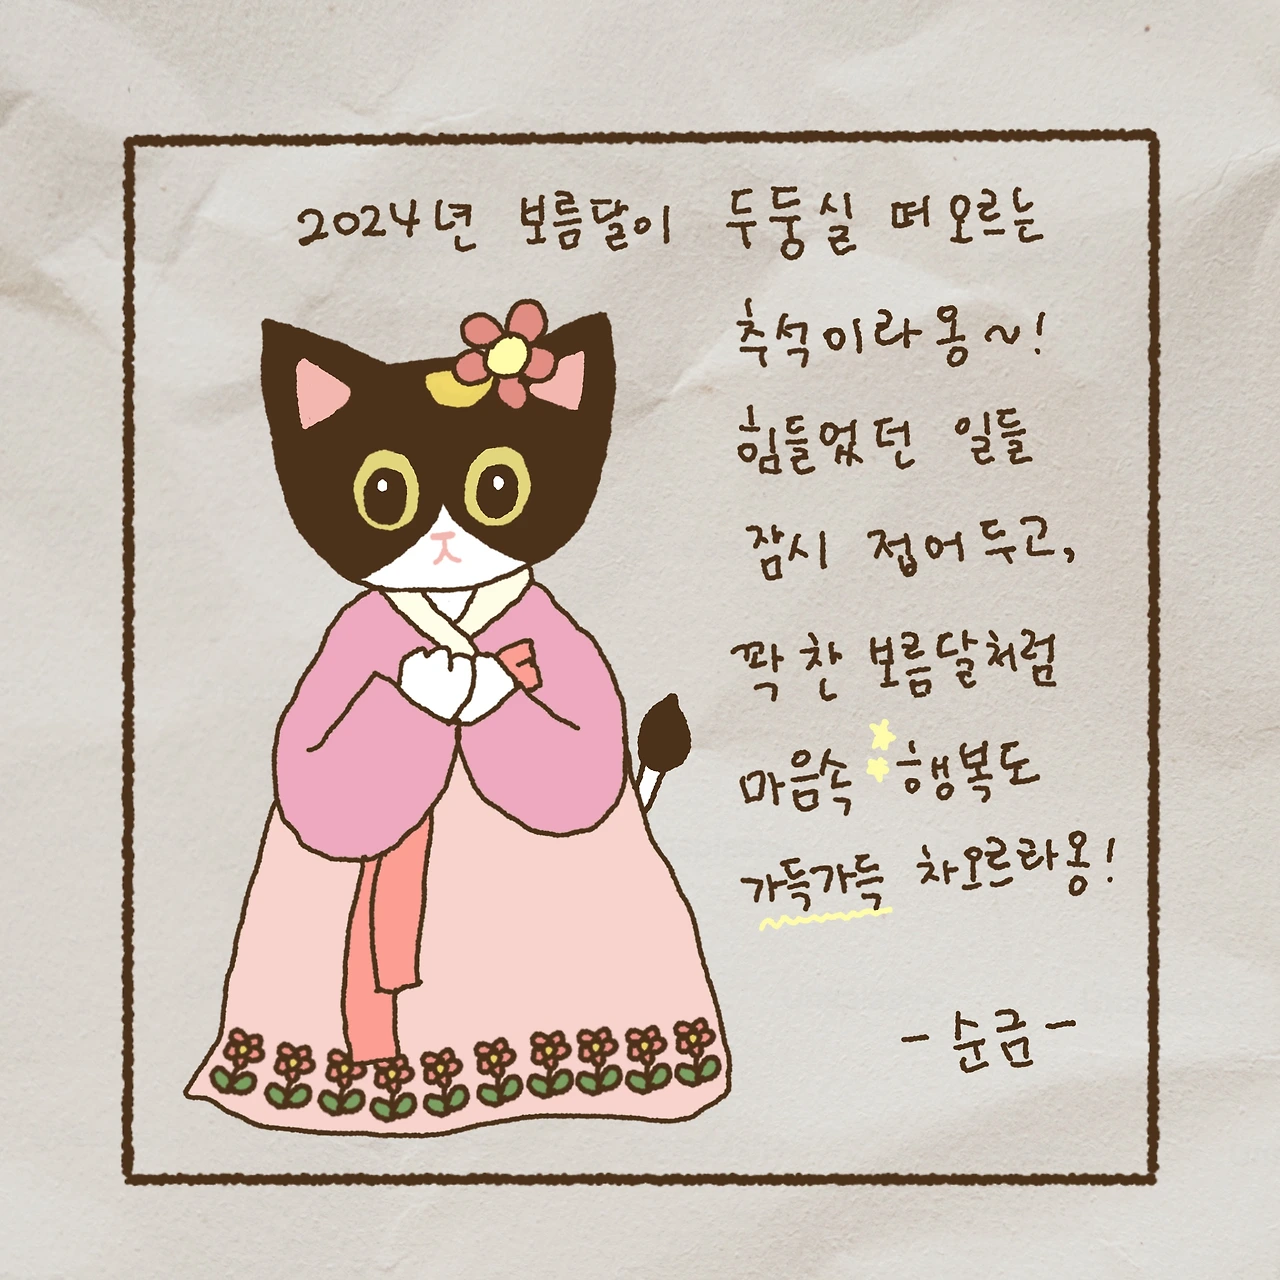 2024년 보름달이 두둥실 떠오르는
추석이라옹~!
힘들었던 일들
잠시 접어두고,
꽉 찬 보름달처럼
마음속 행복도
가득가득 차오르라옹!
- 순금 -